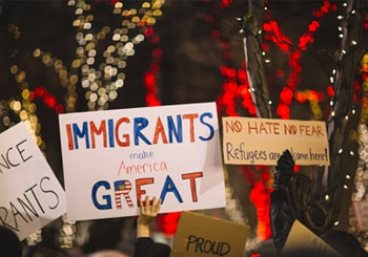 NCE
GRANTS
IMMIGRANTS
make
America
GREAT
NO HATE NO FEAR
Refugees are here!
PROUD